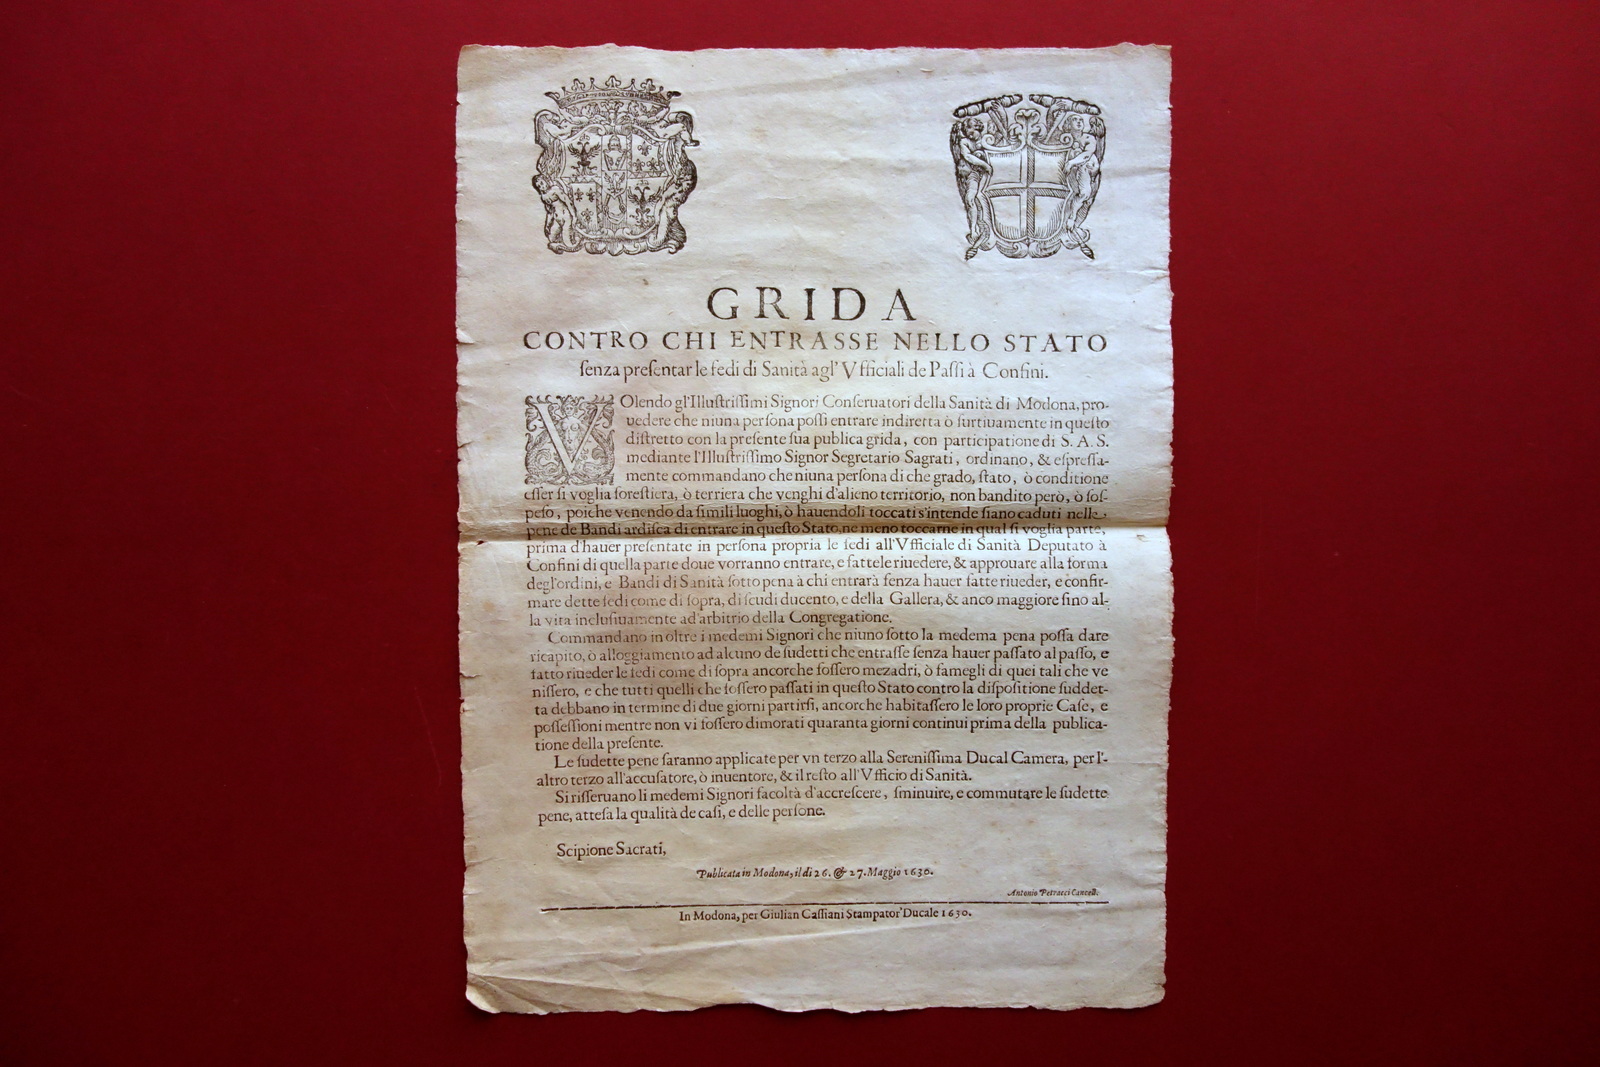 GRIDA
CONTRO CHI ENTRASSE NELLO STATO
ſenza preſentar le fedi di Sanità agl' Vfficiali de Paſſi à Confini.
VOlendo gl'Illuſtriſſimi Signori Conſeruatori della Sanità di Modona, pro-
uedere che niuna perſona poſſi entrare indiretta ò furtiuamente in queſto
diſtretto con la preſente ſua publica grida, con participatione di S. A. S.
mediante l'Illuſtriſſimo Signor Segretario Sagrati, ordinano, & eſpreſſa-
mente commandano che niuna perſona di che grado, ſtato, ò conditione
eſſer ſi voglia foreſtiera, ò terriera che venghi d'alieno territorio, non bandito però, ò ſoſ-
peſo, poiche venendo da ſimili luoghi, ò hauendoli toccati s'intende ſiano caduti nelle
pene de Bandi ardiſca di entrare in queſto Stato, ne meno toccarne in qual ſi voglia parte,
prima d'hauer preſentate in perſona propria le fedi all'Vfficiale di Sanità Deputato à
Confini di quella parte doue vorranno entrare, e fattele riuedere, & approuare alla forma
degl'ordini, e Bandi di Sanità ſotto pena à chi entrarà ſenza hauer fatte riueder, e confir-
mare dette fedi come di ſopra, di ſcudi ducento, e della Gallera, & anco maggiore fino al-
la vita incluſiuamente ad'arbitrio della Congregatione.
Commandano in oltre i medemi Signori che niuno ſotto la medema pena poſſa dare
ricapito, ò alloggiamento ad alcuno de ſudetti che entraſſe ſenza hauer paſſato al paſſo, e
fatto riueder le fedi come di ſopra ancorche foſſero mezadri, ò famegli di quei tali che ve
niſſero, e che tutti quelli che foſſero paſſati in queſto Stato contro la diſpoſitione ſuddet-
ta debbano in termine di due giorni partirſi, ancorche habitaſſero le loro proprie Caſe, e
poſſeſſioni mentre non vi foſſero dimorati quaranta giorni continui prima della publica-
tione della preſente.
Le ſudette pene ſaranno applicate per vn terzo alla Sereniſſima Ducal Camera, per l'-
altro terzo all'accuſatore, ò inuentore, & il reſto all'Vfficio di Sanità.
Si riſſeruano li medemi Signori facoltà d'accreſcere, ſminuire, e commutare le ſudette
pene, atteſa la qualità de caſi, e delle perſone.
Scipione Sacrati,
Publicata in Modona, il di 26. & 27. Maggio 1630.
Antonio Petracci Cancell.
In Modona, per Giulian Caſſiani Stampator' Ducale 1630.